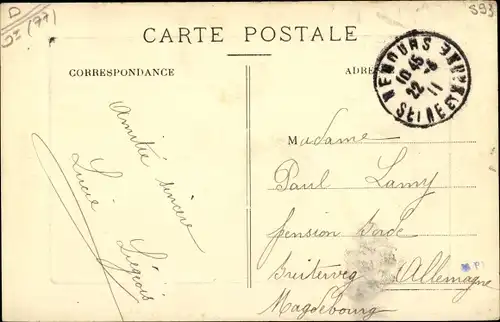 D
(77)
593
CARTE POSTALE
CORRESPONDANCE
ADRE
NEMOURS
10 45
22 11
SEINE ET MARNE
Amitié sincère
Lucie
Liégiois
Madame
Paul Lamy
pension Borde
Breiterveg
Allemagne
Magdebourg